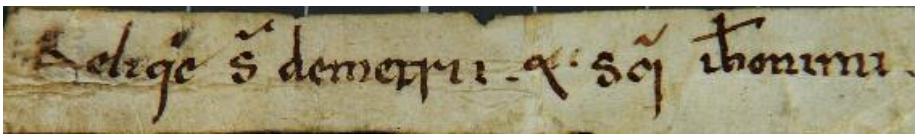 Reliq̃e s̃ demetrii . & · sc̃i ih̄onimi .